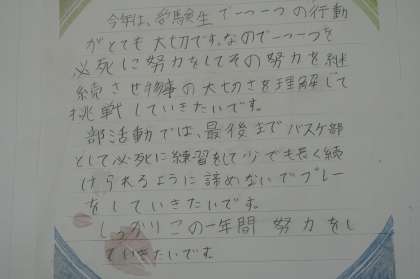 今年は、受験生で一つ一つの行動
がとても大切です。なので一つ一つを
必死に努力をしてその努力を継
続させ物事の大切さを理解して
挑戦していきたいです。
部活動では、最後までバスケ部
として必死に練習をして少しでも長く続
けられるように諦めないでプレー
をしていきたいです。
しっかりこの一年間 努力をし
ていきたいです